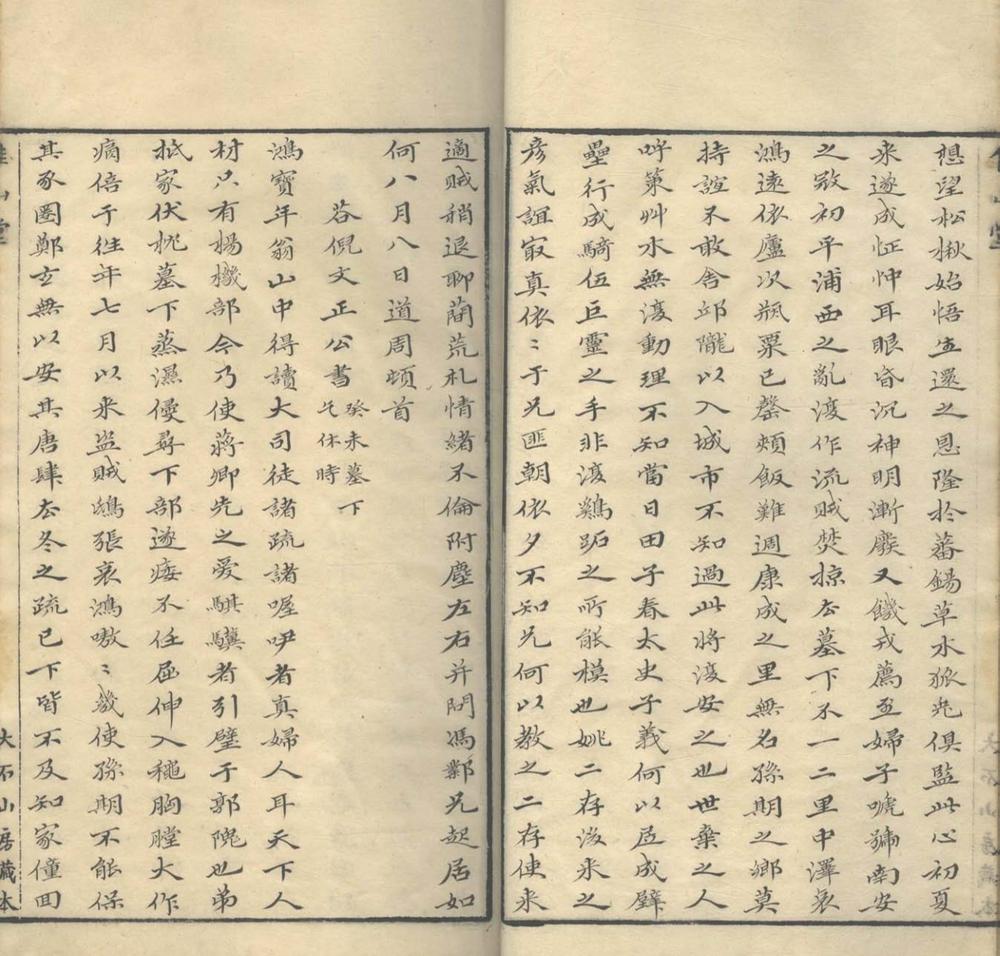 想望松楸始悟生還之恩隆於蕃錫草水猿兆俱監此心初夏
来遂成怔忡耳眼昏沉神明漸廢又饑戎薦至婦子嗁號南安
之歅初平浦西之亂復作流賊焚掠去墓下不一二里中澤哀
鴻遠依廬次瓶粟已罄頰飯難週康成之里無名孫期之鄉莫
持誼不敢舍邱隴以入城市不知過此將復安之也世棄之人
呼策艸水無復動理不知當日田子春太史子義何以居成壁
壘行成騎伍巨靈之手非復鷄跖之所能模也姚二存後来之
彦氣誼最真依〻于兄匪朝依夕不知兄何以教之二存使来
適賊稍退聊蕳荒札情緒不倫附塵左右并問馮鄴兄起居如
何八月八日道周頓首
荅倪文正公書 癸未墓下乞休時
鴻寶年翁山中得讀大司徒諸疏諸喔咿者真婦人耳天下人
材只有楊機部今乃使蔣卿先之爱騏驥者引璧于郭隗也弟
抵家伏枕墓下蒸濕侵尋下部遂痿不任屈伸入穐胸膛大作
痛倍于徃年七月以来盗賊鴟張哀鴻嗷〻幾使孫期不能保
其豕圈鄭玄無以安其唐肆去冬之疏已下皆不及知家僮回
大石山房藏本